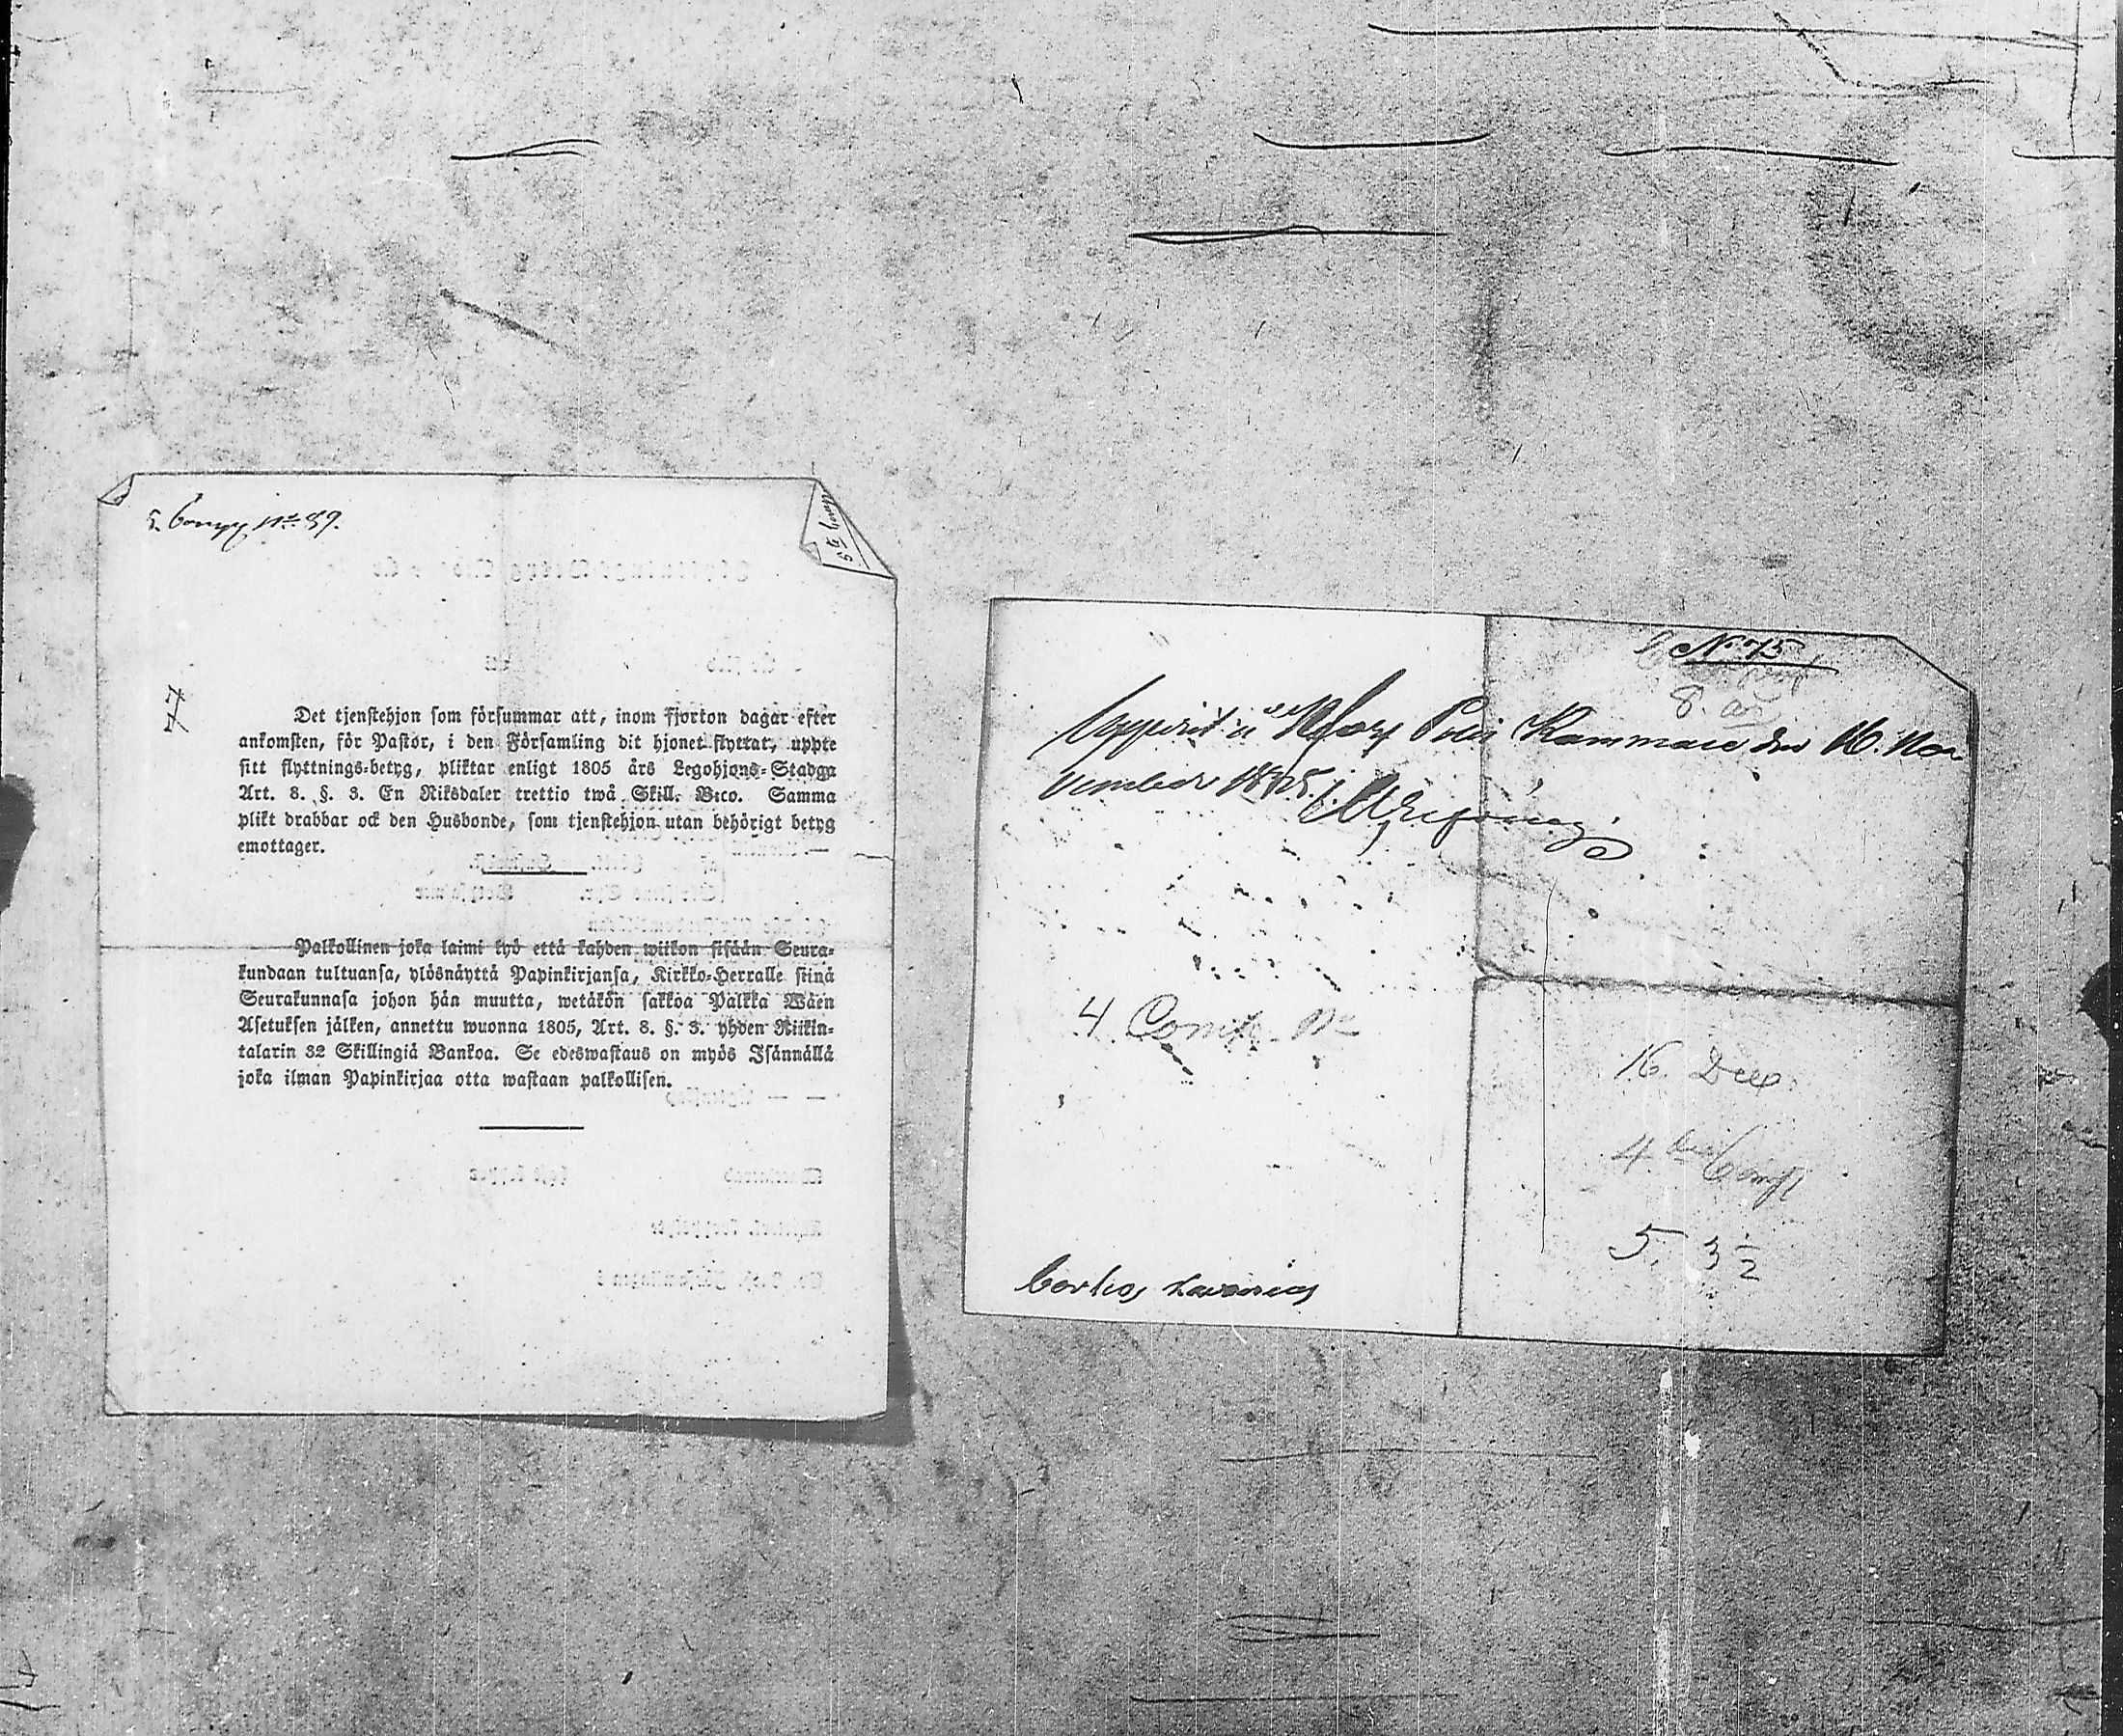 5. Comp. No 89.
5te Comp
Det tjenstehjon som försummar att, inom fjorton dagar efter
ankomsten, för Pastor, i den Församling dit hjonet flyttat, uppte
sitt flyttnings-betyg, pliktar enligt 1805 års Legohjons-Stadga
Art. 8. §. 3. En Riksdaler trettio twå Skill. Bco. Samma
plikt drabbar ock den Husbonde, som tjenstehjon utan behörigt betyg
emottager.
Palkollinen joka laimi lyö että kahden wiikon sisään Seura-
kundaan tultuansa, ylösnäyttä Papinkirjansa, Kirkko-Herralle siinä
Seurakunnasa johon hän muutta, wetäkön sakkoa Palkka Wäen
Asetuksen jälken, annettu wuonna 1805, Art. 8. §. 3. yhden Riikin-
talarin 32 Skillingiä Bankoa. Se edeswastaus on myös Isännällä
joka ilman Papinkirjaa otta wastaan palkollisen.
N. 75
8.
Uppvist i Polis Kammare den 16. No-
vember
4 Comp. No
16 Dec.
4 Comp
5. 3 1/2